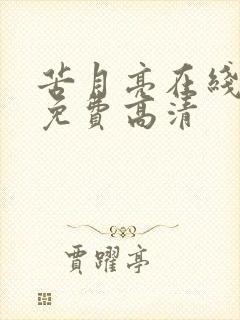 苦月亮在綫
免費高清
賈躍亭